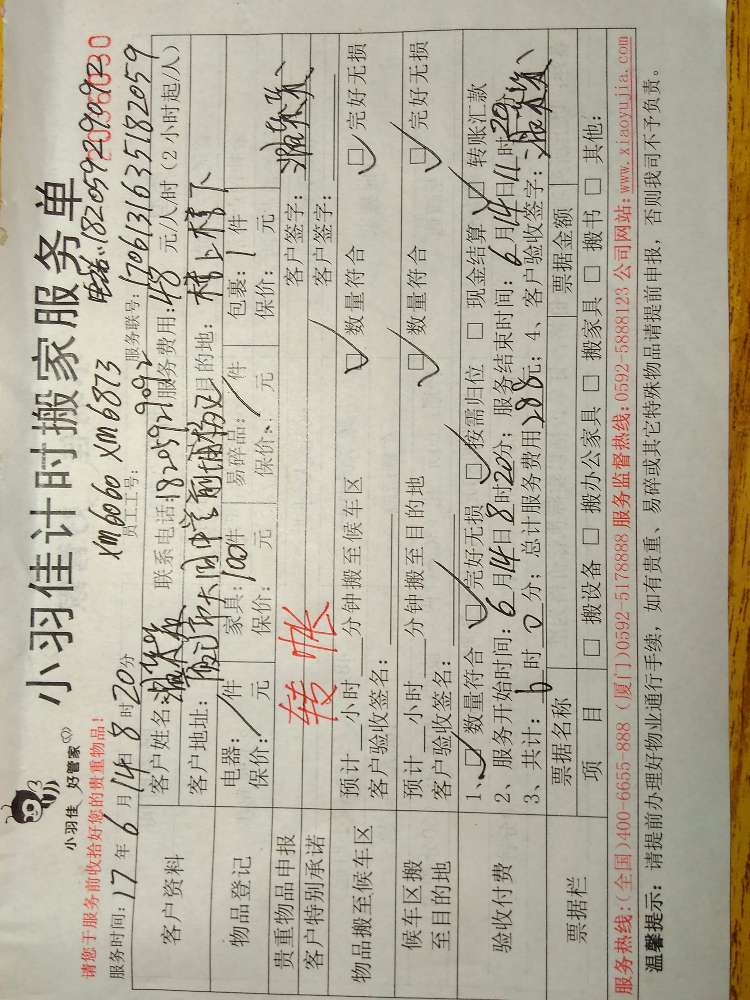 小羽佳计时搬家服务单
小羽佳 好管家
请您于服务前收拾好您的贵重物品!
XM6060 XM6873 电话:18205929092
员工工号: 服务联号: 1706131635182059
服务时间: 17 年 6 月 14 日 8 时 20 分 服务费用: 48 元/人/时 (2小时起/人)
客户资料
客户姓名: 联系电话: 18205929092
客户地址: 目的地: 楼上楼下
物品登记
电器: / 件 家具: 100 件 易碎品: / 件 包裹: 1 件
保价: 元 保价: 元 保价: 元 保价: 元
贵重物品申报
客户签字:
客户特别承诺
转帐
客户签字:
物品搬至候车区
预计 小时 分钟搬至候车区 ☑ 数量符合 ☑ 完好无损
客户验收签名:
候车区搬至目的地
预计 小时 分钟搬至目的地 ☑ 数量符合 ☑ 完好无损
客户验收签名:
验收付费
1、☑ 数量符合 ☑ 完好无损 ☑ 按需归位 □ 现金结算 ☑ 转账汇款
2、服务开始时间: 6 月 14 日 8 时 20 分; 服务结束时间: 6 月 14 日 11 时
3、共计: 时 0 分; 总计服务费用 288 元; 4、客户验收签字:
票据栏
票据名称 票据金额
项 目 □ 搬设备 □ 搬办公家具 □ 搬家具 □ 搬书 □ 其他:
服务热线:(全国)400-6655-888 (厦门)0592-5178888 服务监督热线:0592-5888123 公司网站:www.xiaoyujia.com
温馨提示: 请提前办理好物业通行手续, 如有贵重、易碎或其它特殊物品请提前申报, 否则我司不予负责。